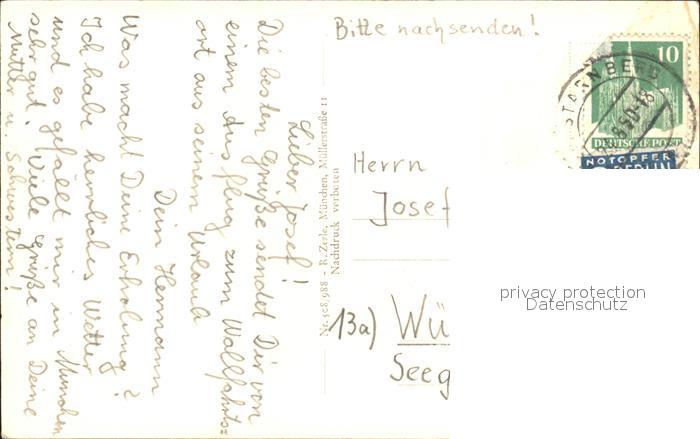 Bitte nachsenden!
10
STARNBERG
8.50-18
DEUTSCHE POST
NOTOPFER
BERLIN
Lieber Josef!
Die besten Grüße sendet Dir von
einem Ausflug zum Wallfahrts=
ort aus seinem Urlaub
Dein Hermann
Was macht Deine Erholung?
Ich habe herrliches Wetter
und es gefällt mir in München
sehr gut. Viele Grüße an Deine
Mutter u. Schwestern!
Nr. 508.988 - R. Zerle, München, Müllerstraße 11
Nachdruck verboten
Herrn
Josef
13a) Wü
Seeg
privacy protection
Datenschutz